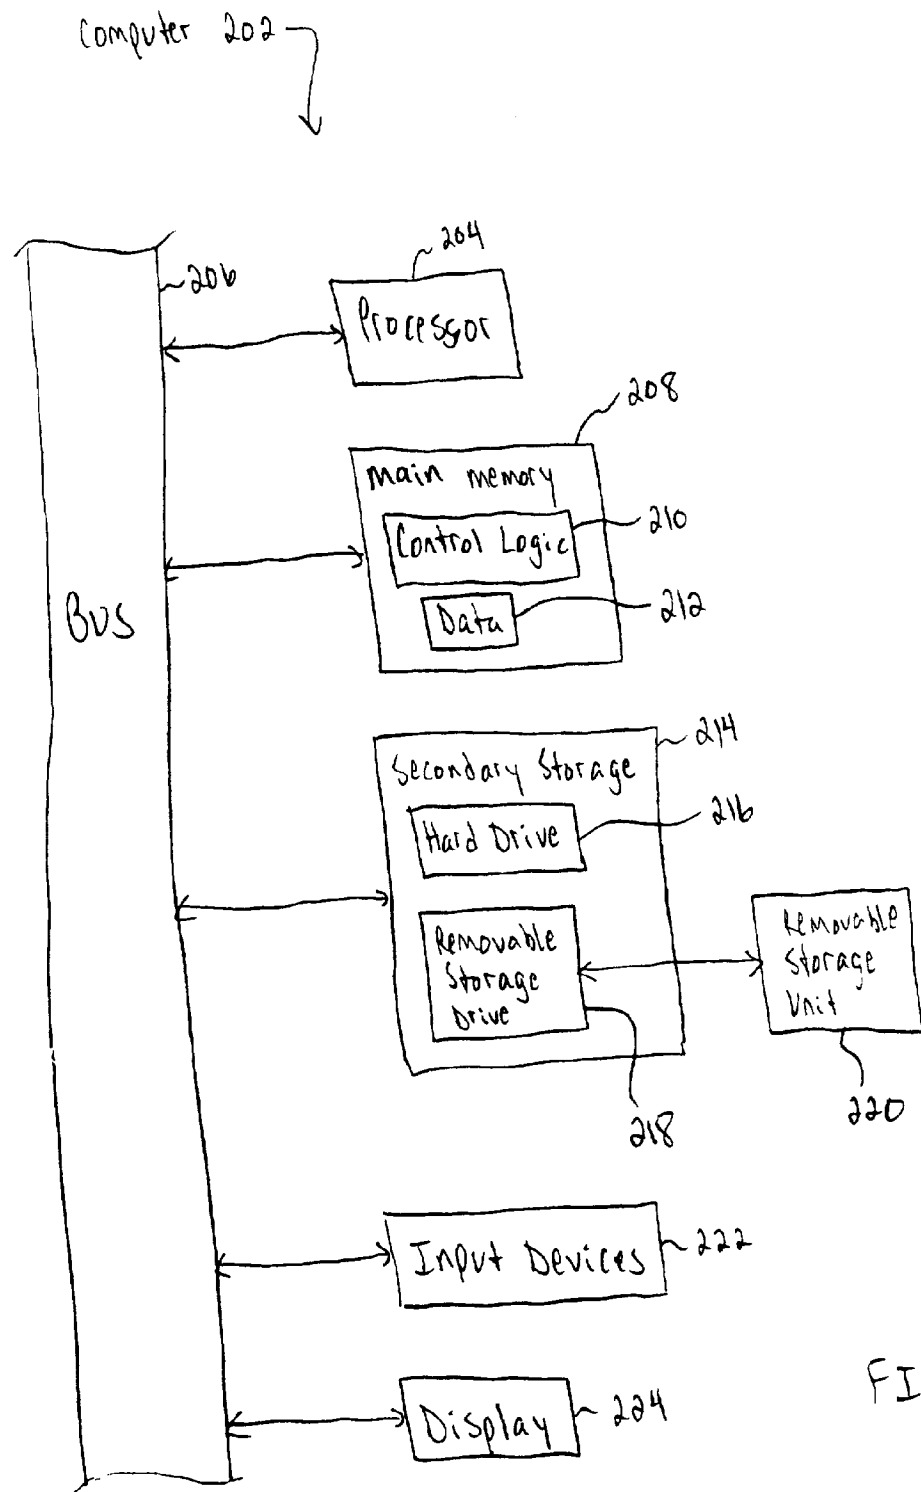 Computer 202
206
204
Processor
208
Main Memory
Control Logic
210
Data
212
Bus
214
Secondary Storage
Hard Drive
216
Removable
Storage
Drive
218
Removable
Storage
Unit
220
Input Devices
222
Display
224
FI